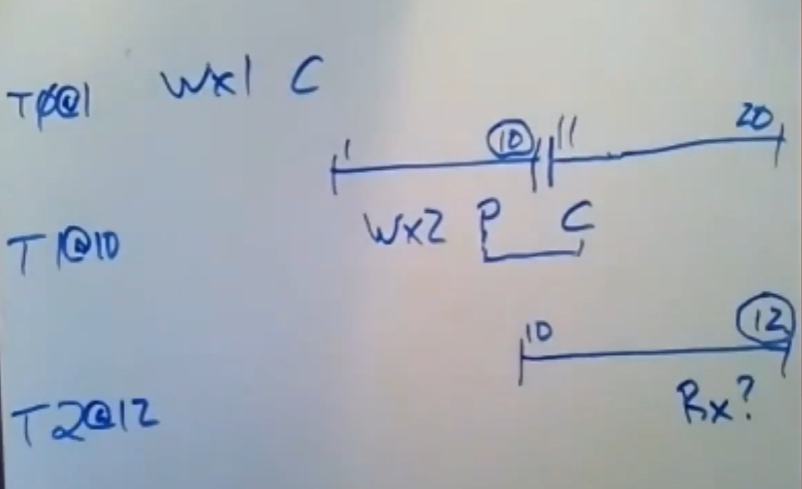 TØ@1 Wx1 C
1 10 11 20
T1@10 Wx2 P C
10 12
T2@12 Rx?